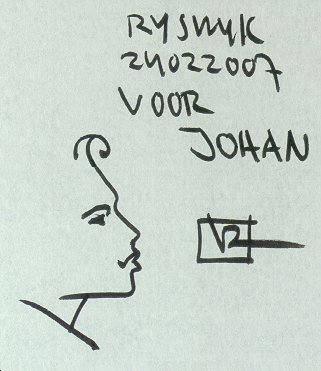 RYSWYK
24022007
VOOR
JOHAN